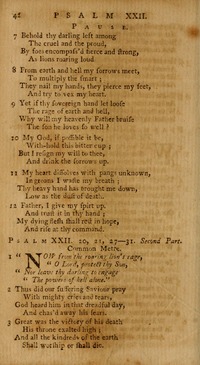 42 PSALM XXII.
PAUSE.
7 Behold thy darling left among
The cruel and the proud,
By foes encompass'd fierce and strong,
As lions roaring loud.
8 From earth and hell my sorrows meet,
To multiply the smart;
They nail my hands, they pierce my feet,
And try to vex my heart.
9 Yet if thy sovereign hand let loose
The rage of earth and hell,
Why will my heavenly Father bruise
The son he loves so well?
10 My God, if possible it be,
With-hold this bitter cup;
But I resign my will to thee,
And drink the sorrows up.
11 My heart dissolves with pangs unknown,
In groans I waste my breath;
Thy heavy hand has brought me down,
Low as the dust of death.
12 Father, I give my spirit up,
And trust it in thy hand;
My dying flesh shall rest in hope,
And rise at thy command.
PSALM XXII. 20, 21, 27—31. Second Part.
Common Metre.
1 " NOW from the roaring lion's rage,
" O Lord, protect thy Son,
" Nor leave thy darling to engage
" The powers of hell alone."
2 Thus did our suffering Saviour pray
With mighty cries and tears,
God heard him in that dreadful day,
And chas'd away his fears.
3 Great was the victory of his death
His throne exalted high;
And all the kindreds of the earth
Shall worship or shall die.